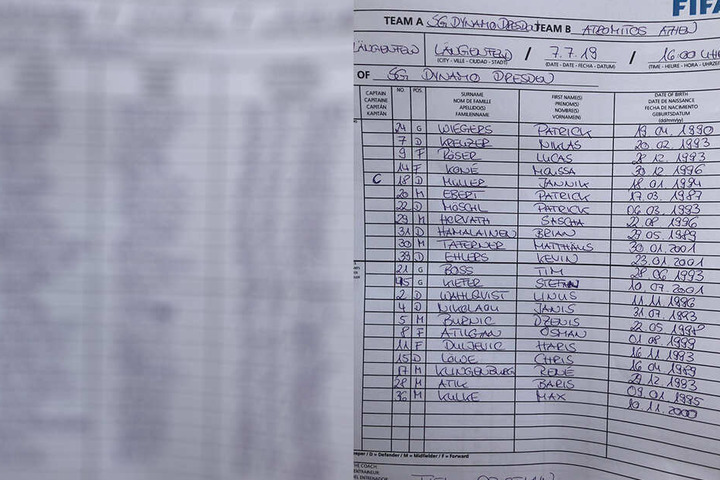 FIFA
TEAM A SG DYNAMO DRESDEN TEAM B ATROMITOS ATHEN
LÄNGENFELD LÄNGENFELD / 7.7.19 / 16:00 UHR
(CITY - VILLE - CIUDAD - STADT) (DATE - DATE - FECHA - DATUM) (TIME - HEURE - HORA - UHRZEIT
OF SG DYNAMO DRESDEN
CAPTAIN CAPITAINE CAPITÁN KAPITÄN NO. POS. SURNAME NOM DE FAMILLE APELLIDO(S) FAMILIENNAME FIRST NAME(S) PRENOM(S) NOMBRE(S) VORNAME(N) DATE OF BIRTH DATE DE NAISSANCE FECHA DE NACIMIENTO GEBURTSDATUM (dd/mm/yy)
24 G WIEGERS PATRICK 19 04. 1990
7 D KREUZER NIKLAS 20 02. 1993
9 F RÖSER LUCAS 28 12. 1993
14 F KONÉ MOUSSA 30 12 1996
C 18 D MÜLLER JANNIK 18 01 1994
20 M EBERT PATRICK 17 03. 1987
22 D MÖSCHL PATRICK 06 03. 1993
29 M HORVATH SASCHA 22 08 1996
31 D HAMALAINEN BRIAN 29 05 1989
30 M TAFERNER MATTHÄUS 30 01 2001
39 D EHLERS KEVIN 23.01 2001
21 G BOSS TIM 28 06 1993
45 G KIEFER STEFAN 10. 07. 2001
2 D WAHLQVIST LINUS 11 11 1996
4 D NIKOLAOU JANIS 31 07 1993
5 M BURNIC DZENIS 22 05 1998
8 F ATILGAN OSMAN 01 08 1999
11 F DULJEVIC HARIS 16 11 1993
15 D LÖWE CHRIS 16 04 1989
17 M KLINGENBURG RENÉ 29 12 1993
28 M ATIK BARIS 09 01 1995
36 M KULKE MAX 10 11 2000
eeper / D = Defender / M = Midfielder / F = Forward